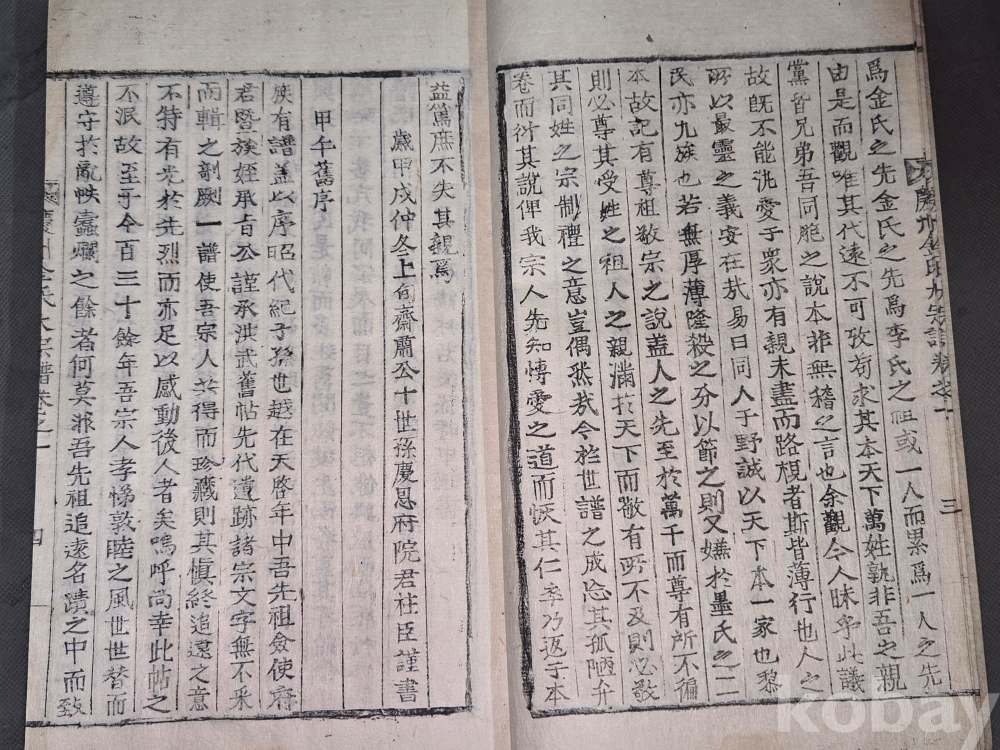 慶州金氏大宗譜 卷之一 三
爲金氏之先金氏之先爲李氏之祖或一人而累爲一人之先
由是而觀唯其代遠不可攷苟求其本天下萬姓孰非吾之親
黨皆兄弟吾同胞之說本非無稽之言也余觀今人昧乎此議
故旣不能汎愛于衆亦有親未盡而路視者斯皆薄行也人之
所以最靈之義安在哉易曰同人于野誠以天下本一家也黎
民亦九族也若無厚薄隆殺之分以節之則又嫌於墨氏之二
本故記有尊祖敬宗之說盖人之先至於萬千而尊有所不徧
則必尊其受姓之祖人之親滿於天下而敬有所不及則必敬
其同姓之宗制禮之意豈偶然哉今於世譜之成忘其孤陋弁
卷而衍其說俾我宗人先知愽愛之道而恢其仁季乃返于本
益篤庶不失其親焉
歲甲戌仲冬上旬齋肅公十世孫慶恩府院君柱臣謹書
甲午舊序
族有譜盖以序昭代紀子孫也越在天啓年中吾先祖僉使府
君曁族姪承旨公謹承洪武舊帖先代遺跡諸宗文字無不釆
而輯之剞劂一譜使吾宗人共得而珍藏則其愼終追遠之意
不特有光於先烈而亦足以感動後人者矣嗚呼尚幸此帖之
不泯故至于今百三十餘年吾宗人孝悌敦睦之風世世替而
遵守於亂帙蠹爛之餘者何莫非吾先祖追遠名蹟之中而致
慶州金氏大宗譜卷之一 四
kobay